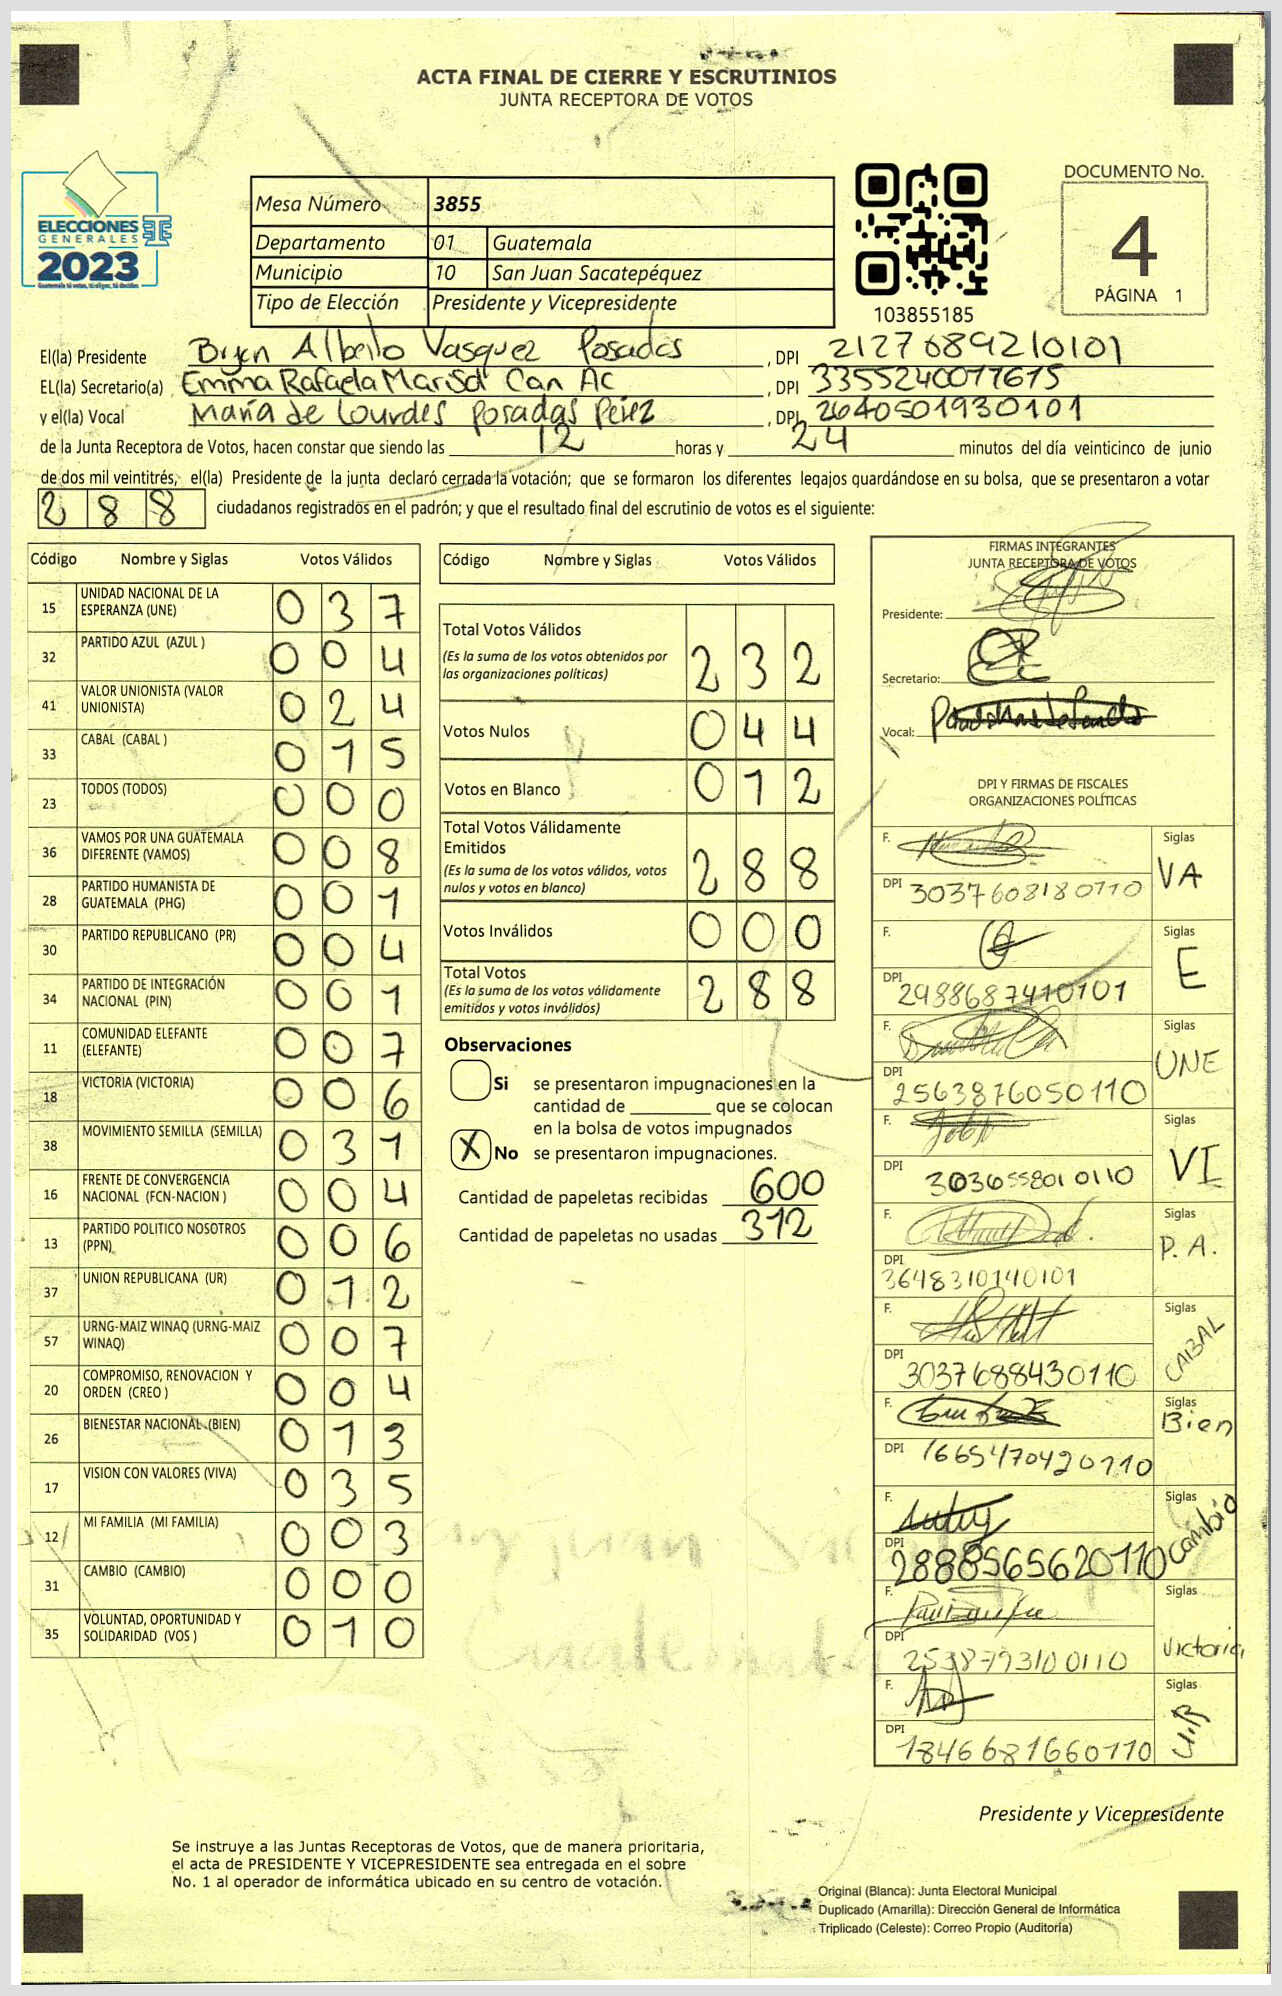 ACTA FINAL DE CIERRE Y ESCRUTINIOS
JUNTA RECEPTORA DE VOTOS
ELECCIONES
GENERALES
2023
Mesa Número 3855
Departamento 01 Guatemala
Municipio 10 San Juan Sacatepéquez
Tipo de Elección Presidente y Vicepresidente
103855185
DOCUMENTO No.
4
PÁGINA 1
El(la) Presidente Bryen Alberto Vasquez Posadas, DPI 2127689210101
EL(la) Secretario(a) Emma Rafaela Marisol Can Ac, DPI 3355240077675
y el(la) Vocal María de Lourdes Posadas Pérez, DPI 2640501930101
de la Junta Receptora de Votos, hacen constar que siendo las 12 horas y 24 minutos del día veinticinco de junio
de dos mil veintitrés, el(la) Presidente de la junta declaró cerrada la votación; que se formaron los diferentes legajos quardándose en su bolsa, que se presentaron a votar
288 ciudadanos registrados en el padrón; y que el resultado final del escrutinio de votos es el siguiente:
Código Nombre y Siglas Votos Válidos
15 UNIDAD NACIONAL DE LA ESPERANZA (UNE) 037
32 PARTIDO AZUL (AZUL ) 004
41 VALOR UNIONISTA (VALOR UNIONISTA) 024
33 CABAL (CABAL ) 015
23 TODOS (TODOS) 000
36 VAMOS POR UNA GUATEMALA DIFERENTE (VAMOS) 008
28 PARTIDO HUMANISTA DE GUATEMALA (PHG) 001
30 PARTIDO REPUBLICANO (PR) 004
34 PARTIDO DE INTEGRACIÓN NACIONAL (PIN) 001
11 COMUNIDAD ELEFANTE (ELEFANTE) 007
18 VICTORIA (VICTORIA) 006
38 MOVIMIENTO SEMILLA (SEMILLA) 031
16 FRENTE DE CONVERGENCIA NACIONAL (FCN-NACION ) 004
13 PARTIDO POLITICO NOSOTROS (PPN) 006
37 UNION REPUBLICANA (UR) 012
57 URNG-MAIZ WINAQ (URNG-MAIZ WINAQ) 007
20 COMPROMISO, RENOVACION Y ORDEN (CREO ) 004
26 BIENESTAR NACIONAL (BIEN) 013
17 VISION CON VALORES (VIVA) 035
12 MI FAMILIA (MI FAMILIA) 003
31 CAMBIO (CAMBIO) 000
35 VOLUNTAD, OPORTUNIDAD Y SOLIDARIDAD (VOS ) 010
Código Nombre y Siglas Votos Válidos
Total Votos Válidos 232
(Es la suma de los votos obtenidos por
las organizaciones políticas)
Votos Nulos 044
Votos en Blanco 012
Total Votos Válidamente
Emitidos 288
(Es la suma de los votos válidos, votos
nulos y votos en blanco)
Votos Inválidos 000
Total Votos 288
(Es la suma de los votos válidamente
emitidos y votos inválidos)
Observaciones
Si se presentaron impugnaciones en la
cantidad de ________ que se colocan
en la bolsa de votos impugnados
X No se presentaron impugnaciones.
Cantidad de papeletas recibidas 600
Cantidad de papeletas no usadas 312
FIRMAS INTEGRANTES
JUNTA RECEPTORA DE VOTOS
Presidente:
Secretario:
Vocal:
DPI Y FIRMAS DE FISCALES
ORGANIZACIONES POLÍTICAS
F. Siglas VA
DPI 3037608180110
F. Siglas E
DPI 2988687410101
F. Siglas UNE
DPI 2563876050110
F. Siglas VI
DPI 3036558010110
F. Siglas P.A.
DPI 3648310140101
F. Siglas CAIBAL
DPI 3037688430110
F. Siglas Bien
DPI 1665470420110
F. Siglas Cambio
DPI 2888565620110
F. Siglas Victoria
DPI 2538793100110
F. Siglas U.R
DPI 1846681660110
Presidente y Vicepresidente
Se instruye a las Juntas Receptoras de Votos, que de manera prioritaria,
el acta de PRESIDENTE Y VICEPRESIDENTE sea entregada en el sobre
No. 1 al operador de informática ubicado en su centro de votación.
Original (Blanca): Junta Electoral Municipal
Duplicado (Amarilla): Dirección General de Informática
Triplicado (Celeste): Correo Propio (Auditoría)